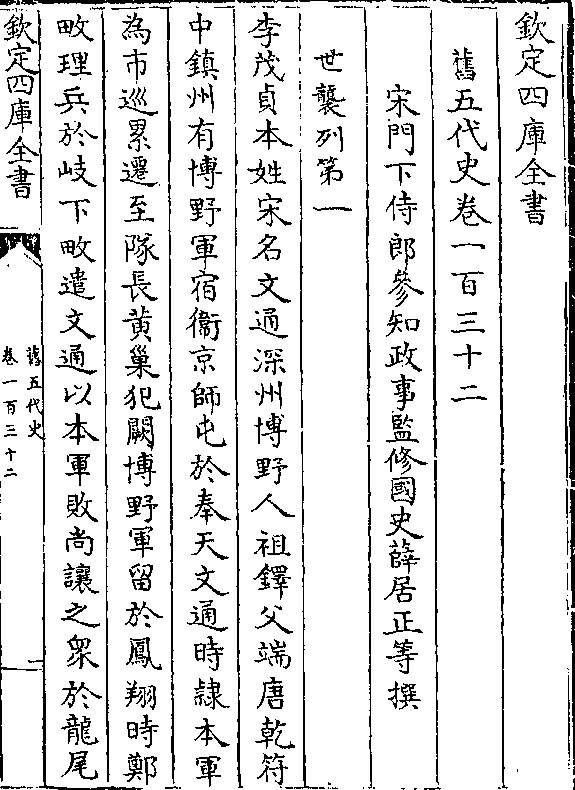 欽定四庫全書
舊五代史卷一百三十二
宋門下侍郎參知政事監修國史薛居正等撰
世襲列第一
李茂貞本姓宋名文通深州博野人祖鐸父端唐乾符
中鎮州有博野軍宿衞京師屯於奉天文通時隷本軍
為市巡累遷至隊長黄巢犯闕博野軍留於鳳翔時鄭
畋理兵於岐下畋遣文通以本軍敗尚讓之衆於龍尾
欽定四庫全書
舊五代史
卷一百三十二
一